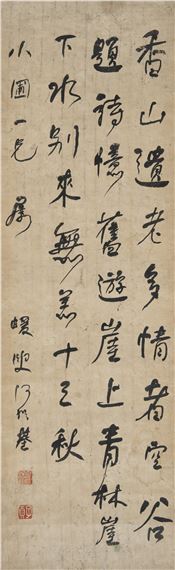 香山遺老多情者空谷
題詩憶舊遊崖上青林崖
下水別來無恙十三秋
小圃一兄屬
蝯叟何紹基